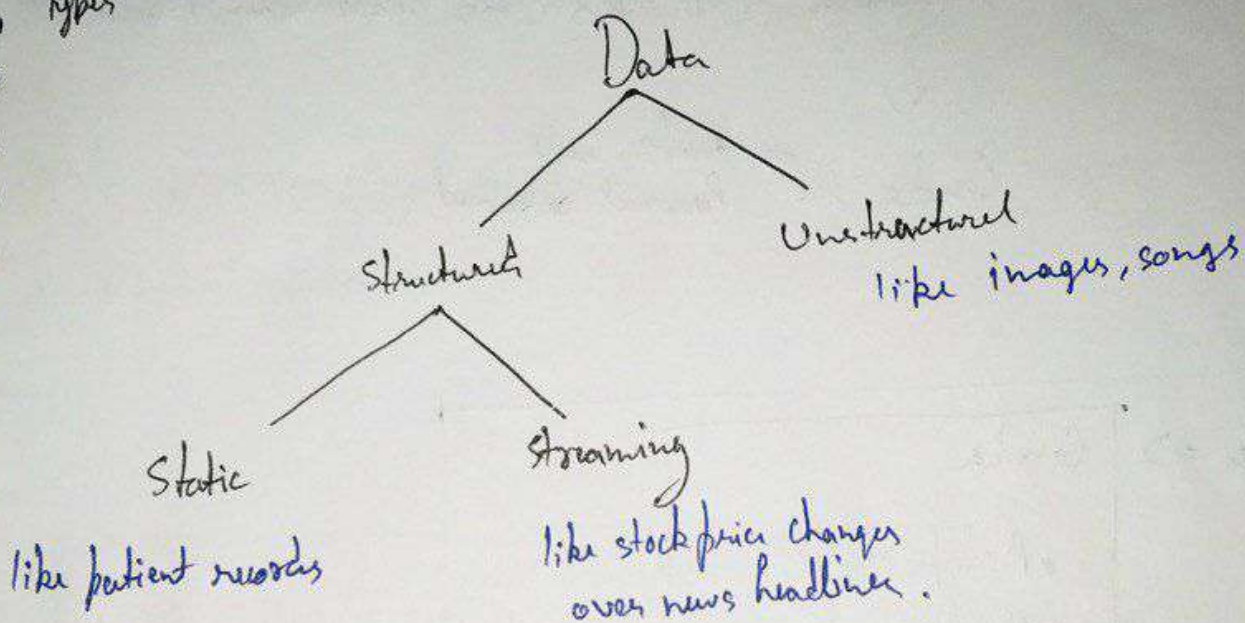 types
Data
Structured
Unstructured
like images, songs
Static
Streaming
like patient records
like stock price changes
over news headlines.